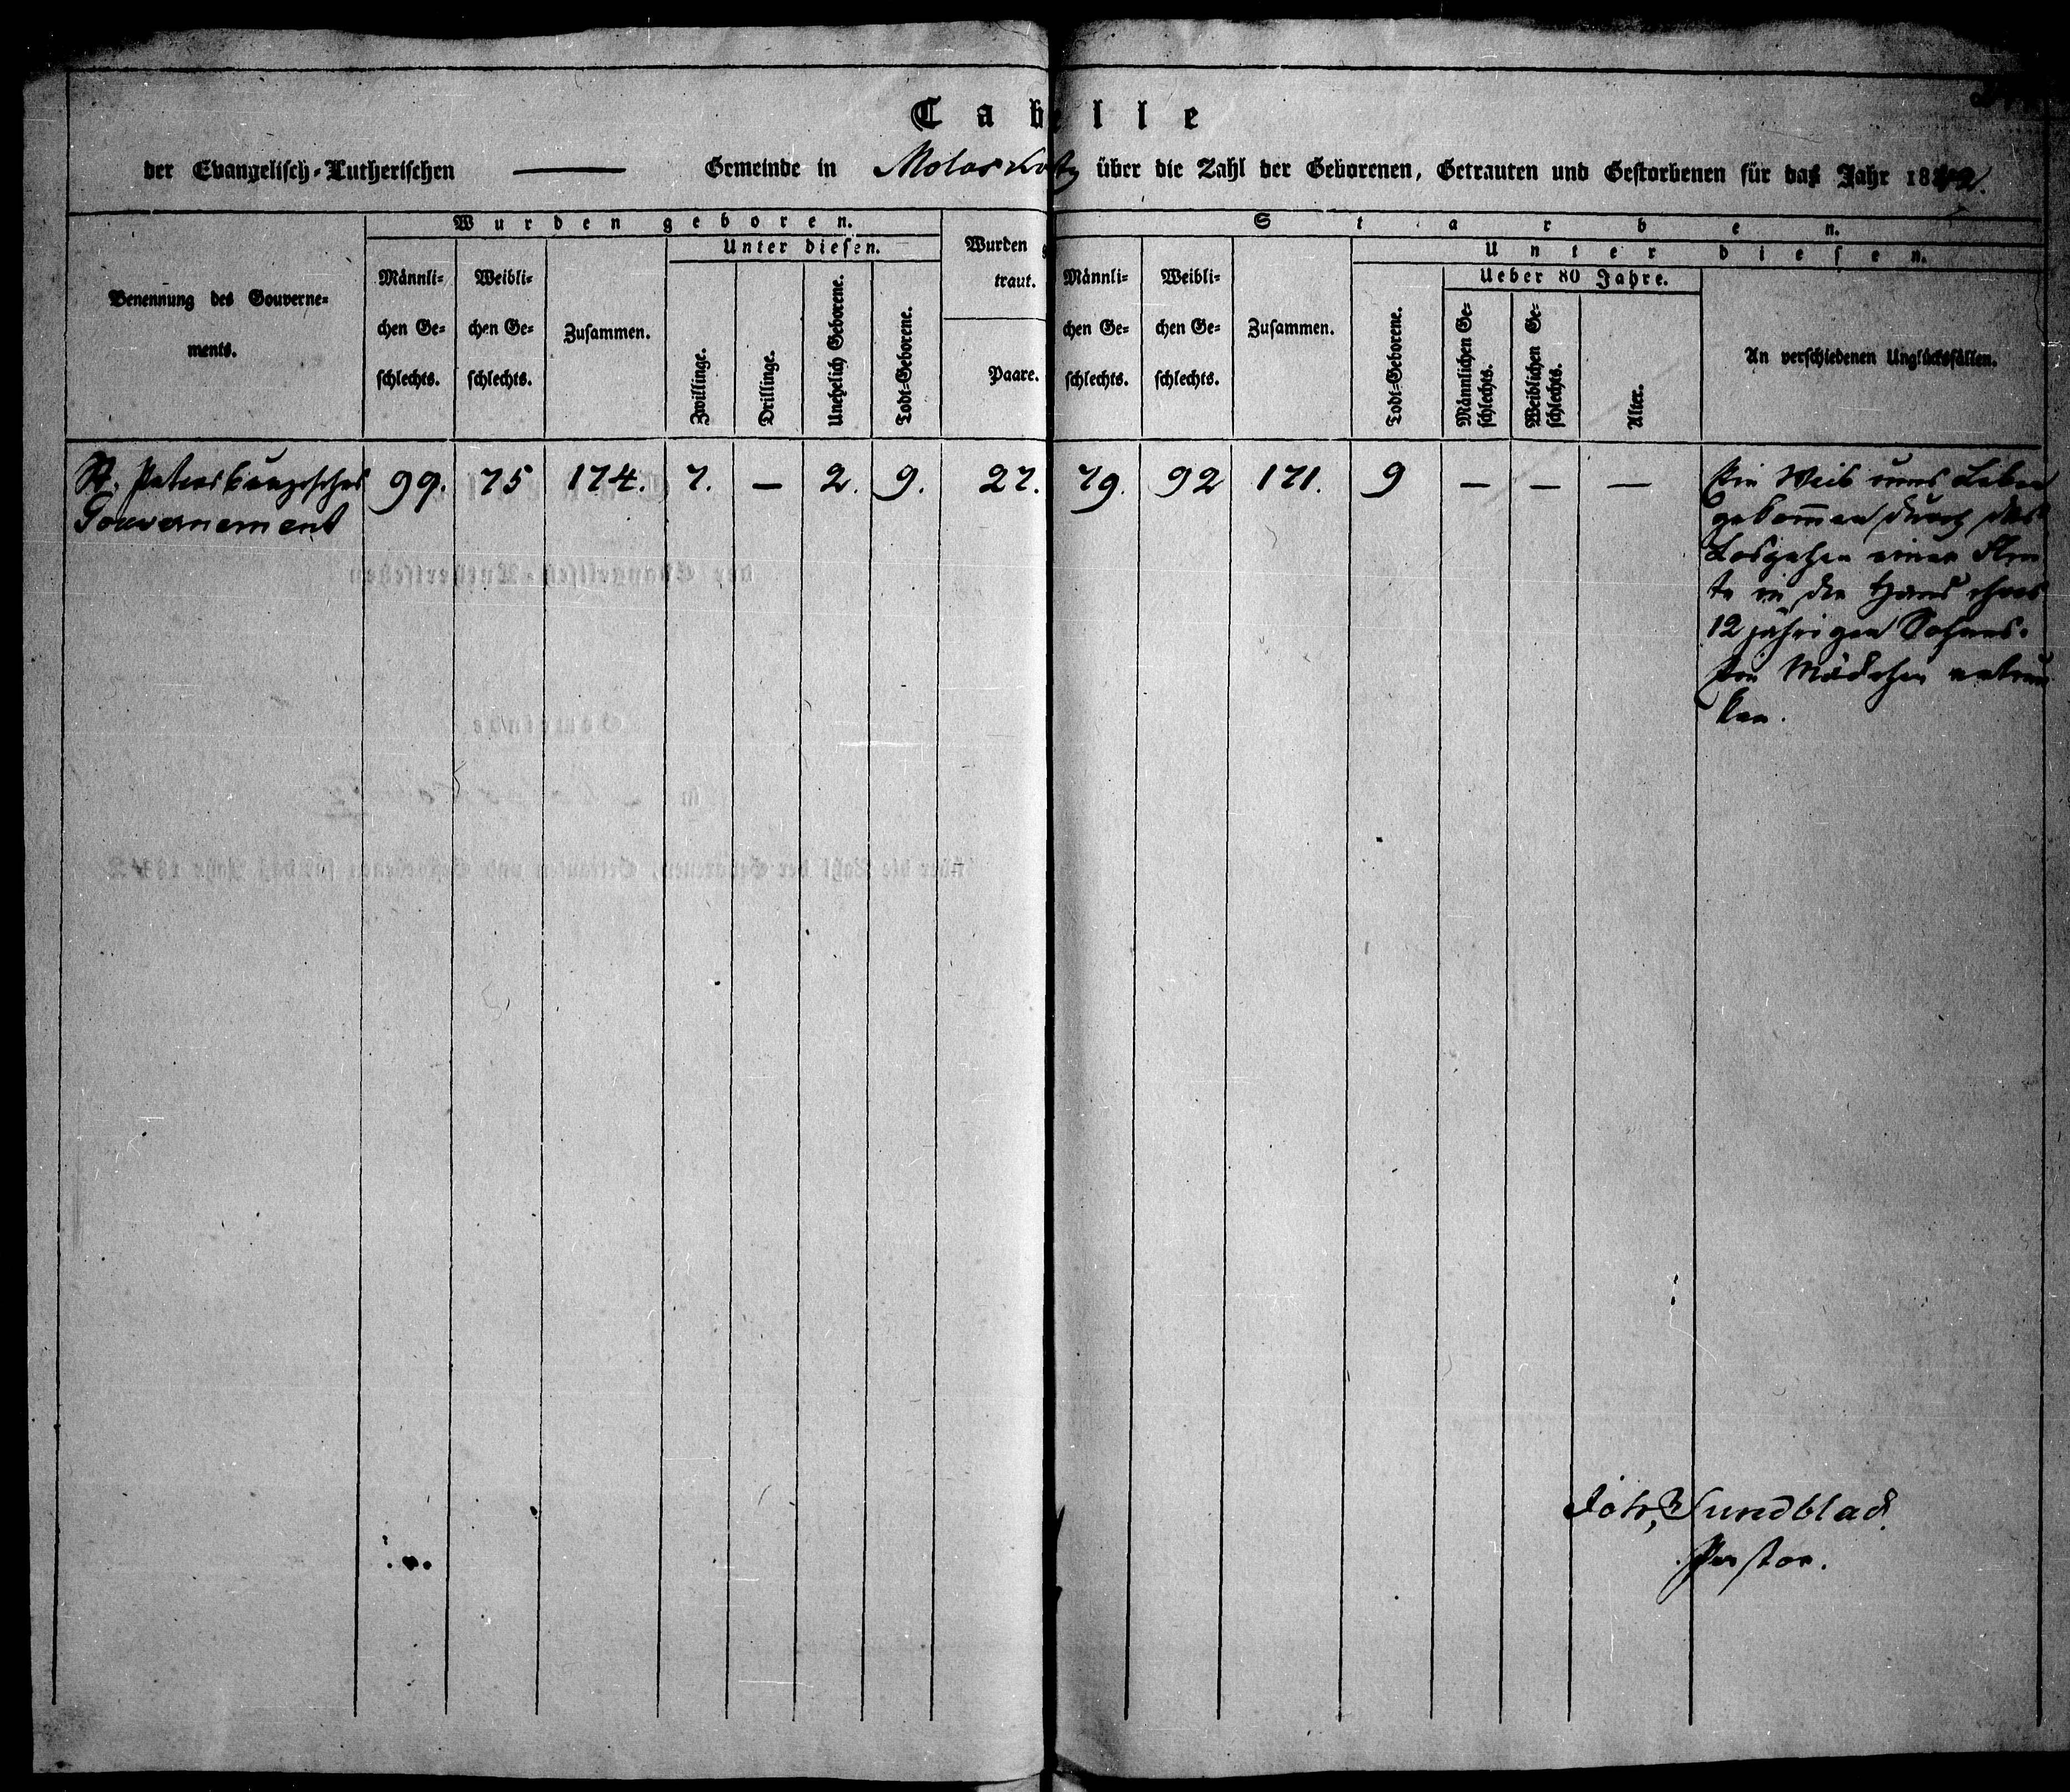 Tabelle
der Evangelisch-Lutherischen ——— Gemeinde in Moloskowitz über die Zahl der Geborenen, Getrauten und Gestorbenen für das Jahr 1842.
Benennung des Gouverne-
ments.
Wurden geboren.
Männli-
chen Ge-
schlechts.
Weibli-
chen Ge-
schlechts.
Zusammen.
Unter diesen.
Zwillinge.
Drillinge.
Unehelich Geborene.
Todt-Geborene.
Wurden
traut.
Paare.
Starben.
Männli-
chen Ge-
schlechts.
Weibli-
chen Ge-
schlechts.
Zusammen.
Unter diesen.
Todt-Geborene.
Ueber 80 Jahre.
Männlichen Ge-
schlechts.
Weiblichen Ge-
schlechts.
Alter.
An verschiedenen Unglücksfällen.
St. Petersburgisches
Gouvernement
99. 75 174. 7. — 2. 9. 27. 79. 92 171. 9 — — —
Ein Weib ums Leben
gekommen durch das
Losgehen einer Flin
te in der Hand ihres
12 jährigen Sohnes.
Ein Mädchen ertrun
ken.
Joh. Sundblad.
Pastor.